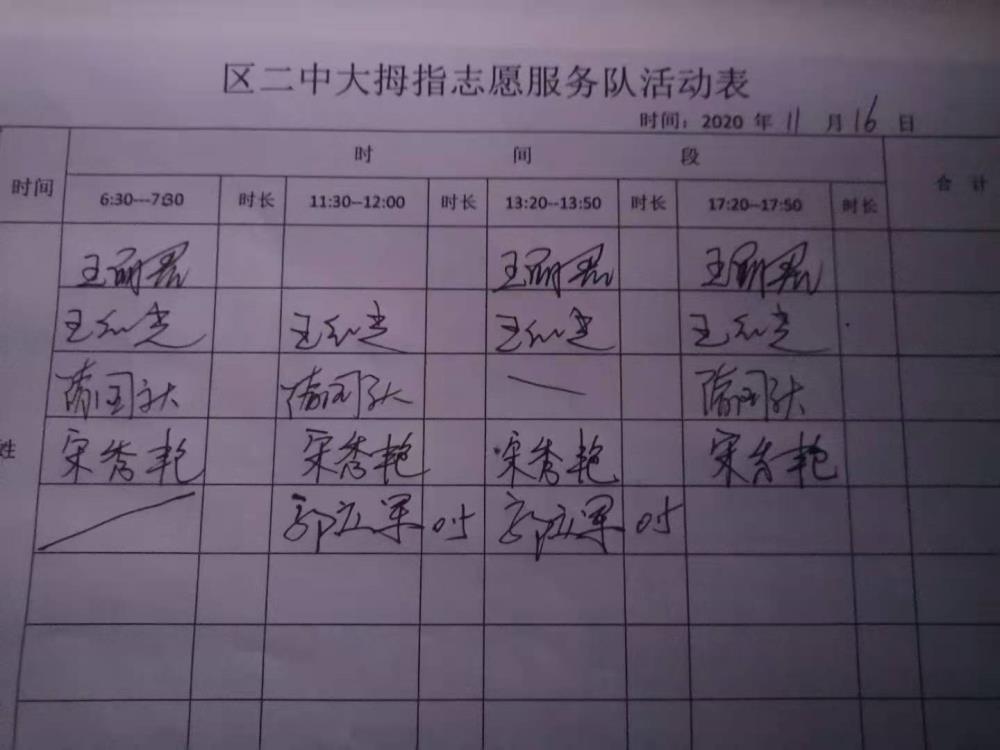 区二中大拇指志愿服务队活动表
时间：2020 年 11 月 16 日
时间 时 间 段 合 计
6:30---7:30 时长 11:30--12:00 时长 13:20--13:50 时长 17:20--17:50 时长
王丽君 王丽君 王丽君
王红光 王红光 王红光 王红光
姓 宋秀艳 宋秀艳 宋秀艳 宋秀艳
郭立军 0.5 郭立军 0.5